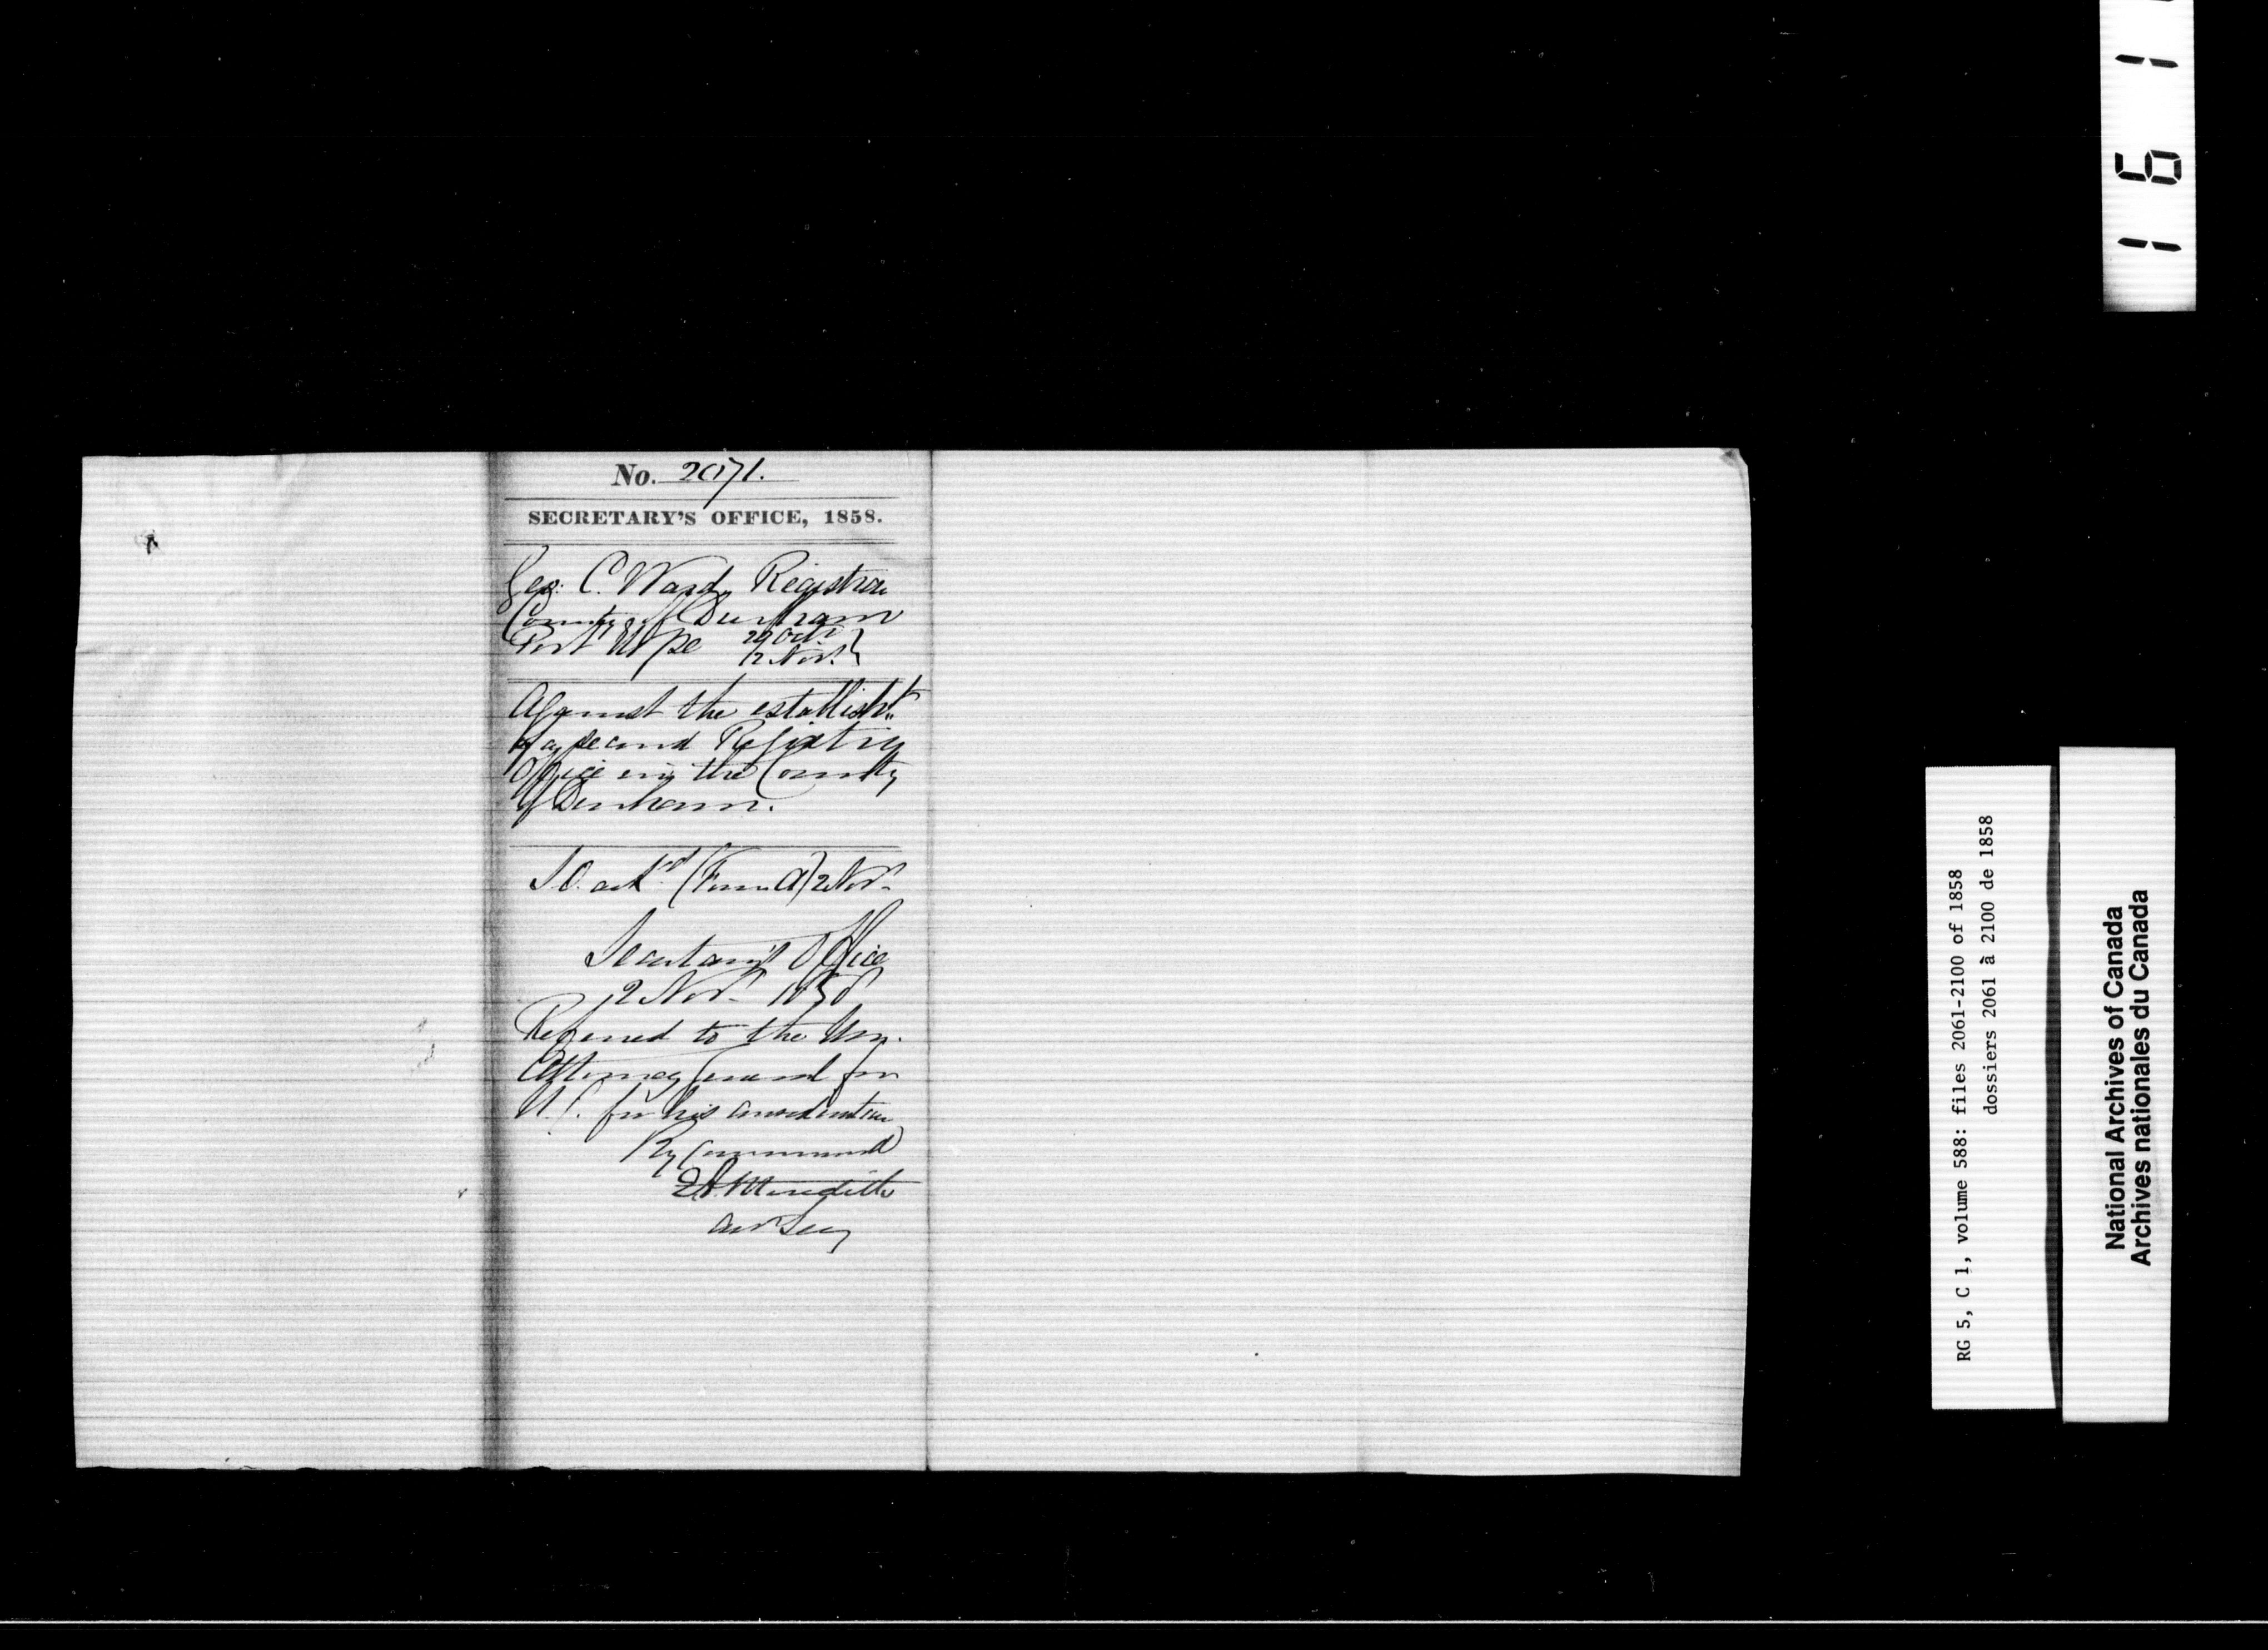 No. 2071.
SECRETARY'S OFFICE, 1858.
Geo: C. Ward, Registrar
County of Durham
Port Hope 29 Octr
/2 Novr.}
Against the establisht
of a second Registry
Office in the County
of Durham.
(Form A) 2 Novr
Secretary's Office
2 Novr. 1858
Referred to the Hon.
Attorney General for
U.C. for his consideration
By Command
E A Meredith
Asst Secy
1 6 1
RG 5, C 1, volume 588: files 2061-2100 of 1858
dossiers 2061 à 2100 de 1858
National Archives of Canada
Archives nationales du Canada